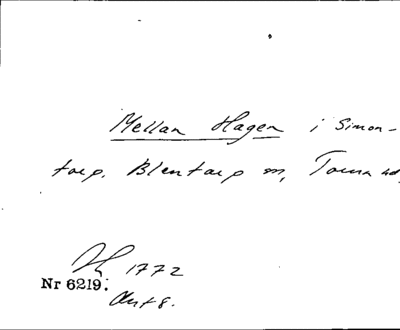 Mellan Hagen i Simon-
torp. Blentarp sn, Torna hd.
1772
Nr 6219.
Akt 8.